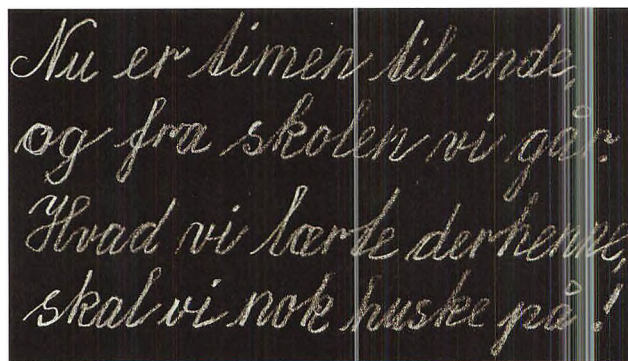 Nu er timen til ende,
og fra skolen vi går.
Hvad vi lærte derhenne,
skal vi nok huske på!